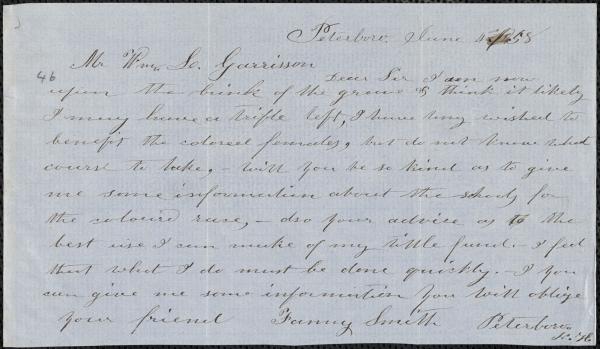 Peterboro, June 1858
Mr Wm. L. Garrison
46
Dear Sir I am now
upon the brink of the grave & think it likely
I may have a trifle left, I have long wished to
benefit the colored females, but do not know what
course to take, - will you be so kind as to give
me some information about the schools for
the coloured race, - also your advice as to the
best use I can make of my little fund. - I feel
that what I do must be done quickly. - I you
can give me some information you will oblige
your friend Fanny Smith Peterboro
N. H.